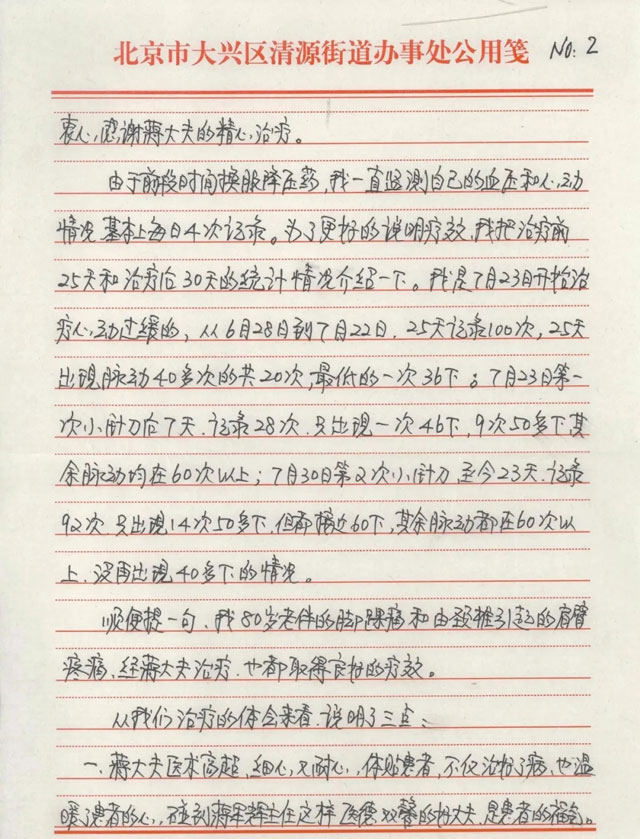 北京市大兴区清源街道办事处公用笺 NO: 2
衷心感谢蒋大夫的精心治疗。
由于前段时间换服降压药,我一直监测自己的血压和心动
情况,基本上每日4次记录。为了更好的说明疗效,我把治疗前
25天和治疗后30天的统计情况介绍一下。我是7月23日开始治
疗心动过缓的,从6月28日到7月22日.25天记录100次,25天
出现脉动40多次的共20次,最低的一次36下;7月23日第一
次小针刀后7天.记录28次.只出现一次46下,9次50多下其
余脉动均在60次以上;7月30日第2次小针刀.至今23天.记录
92次.只出现14次50多下.但都接近60下,其余脉动都在60次以
上.没再出现40多下的情况。
顺便提一句、我80岁老伴的脚踝痛和由颈椎引起的肩臂
疼痛、经蒋大夫治疗.也都取得良好的疗效。
从我们治疗的体会来看.说明了三点:
一.蒋大夫医术高超,细心又耐心,体贴患者,不仅治好了病,也温
暖了患者的心,碰到蒋军辉主任这样医德双馨的好大夫,是患者的福气。